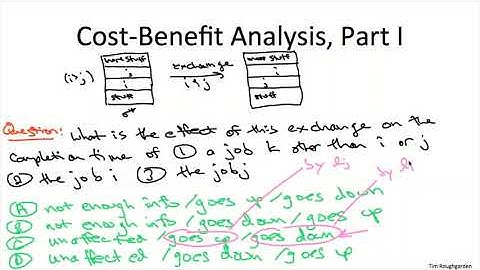 Cost-Benefit Analysis, Part I
(i>j)
more stuff
i
j
stuff
σ*
exchange
i & j
more stuff
j
i
stuff
Question: What is the effect of this exchange on the
completion time of ① a job k other than i or j
② the job i ③ the job j
by lj
by li
Ⓐ not enough info / goes up / goes down
Ⓑ not enough info / goes down / goes up
Ⓒ unaffected / goes up / goes down
Ⓓ unaffected / goes down / goes up
Tim Roughgarden